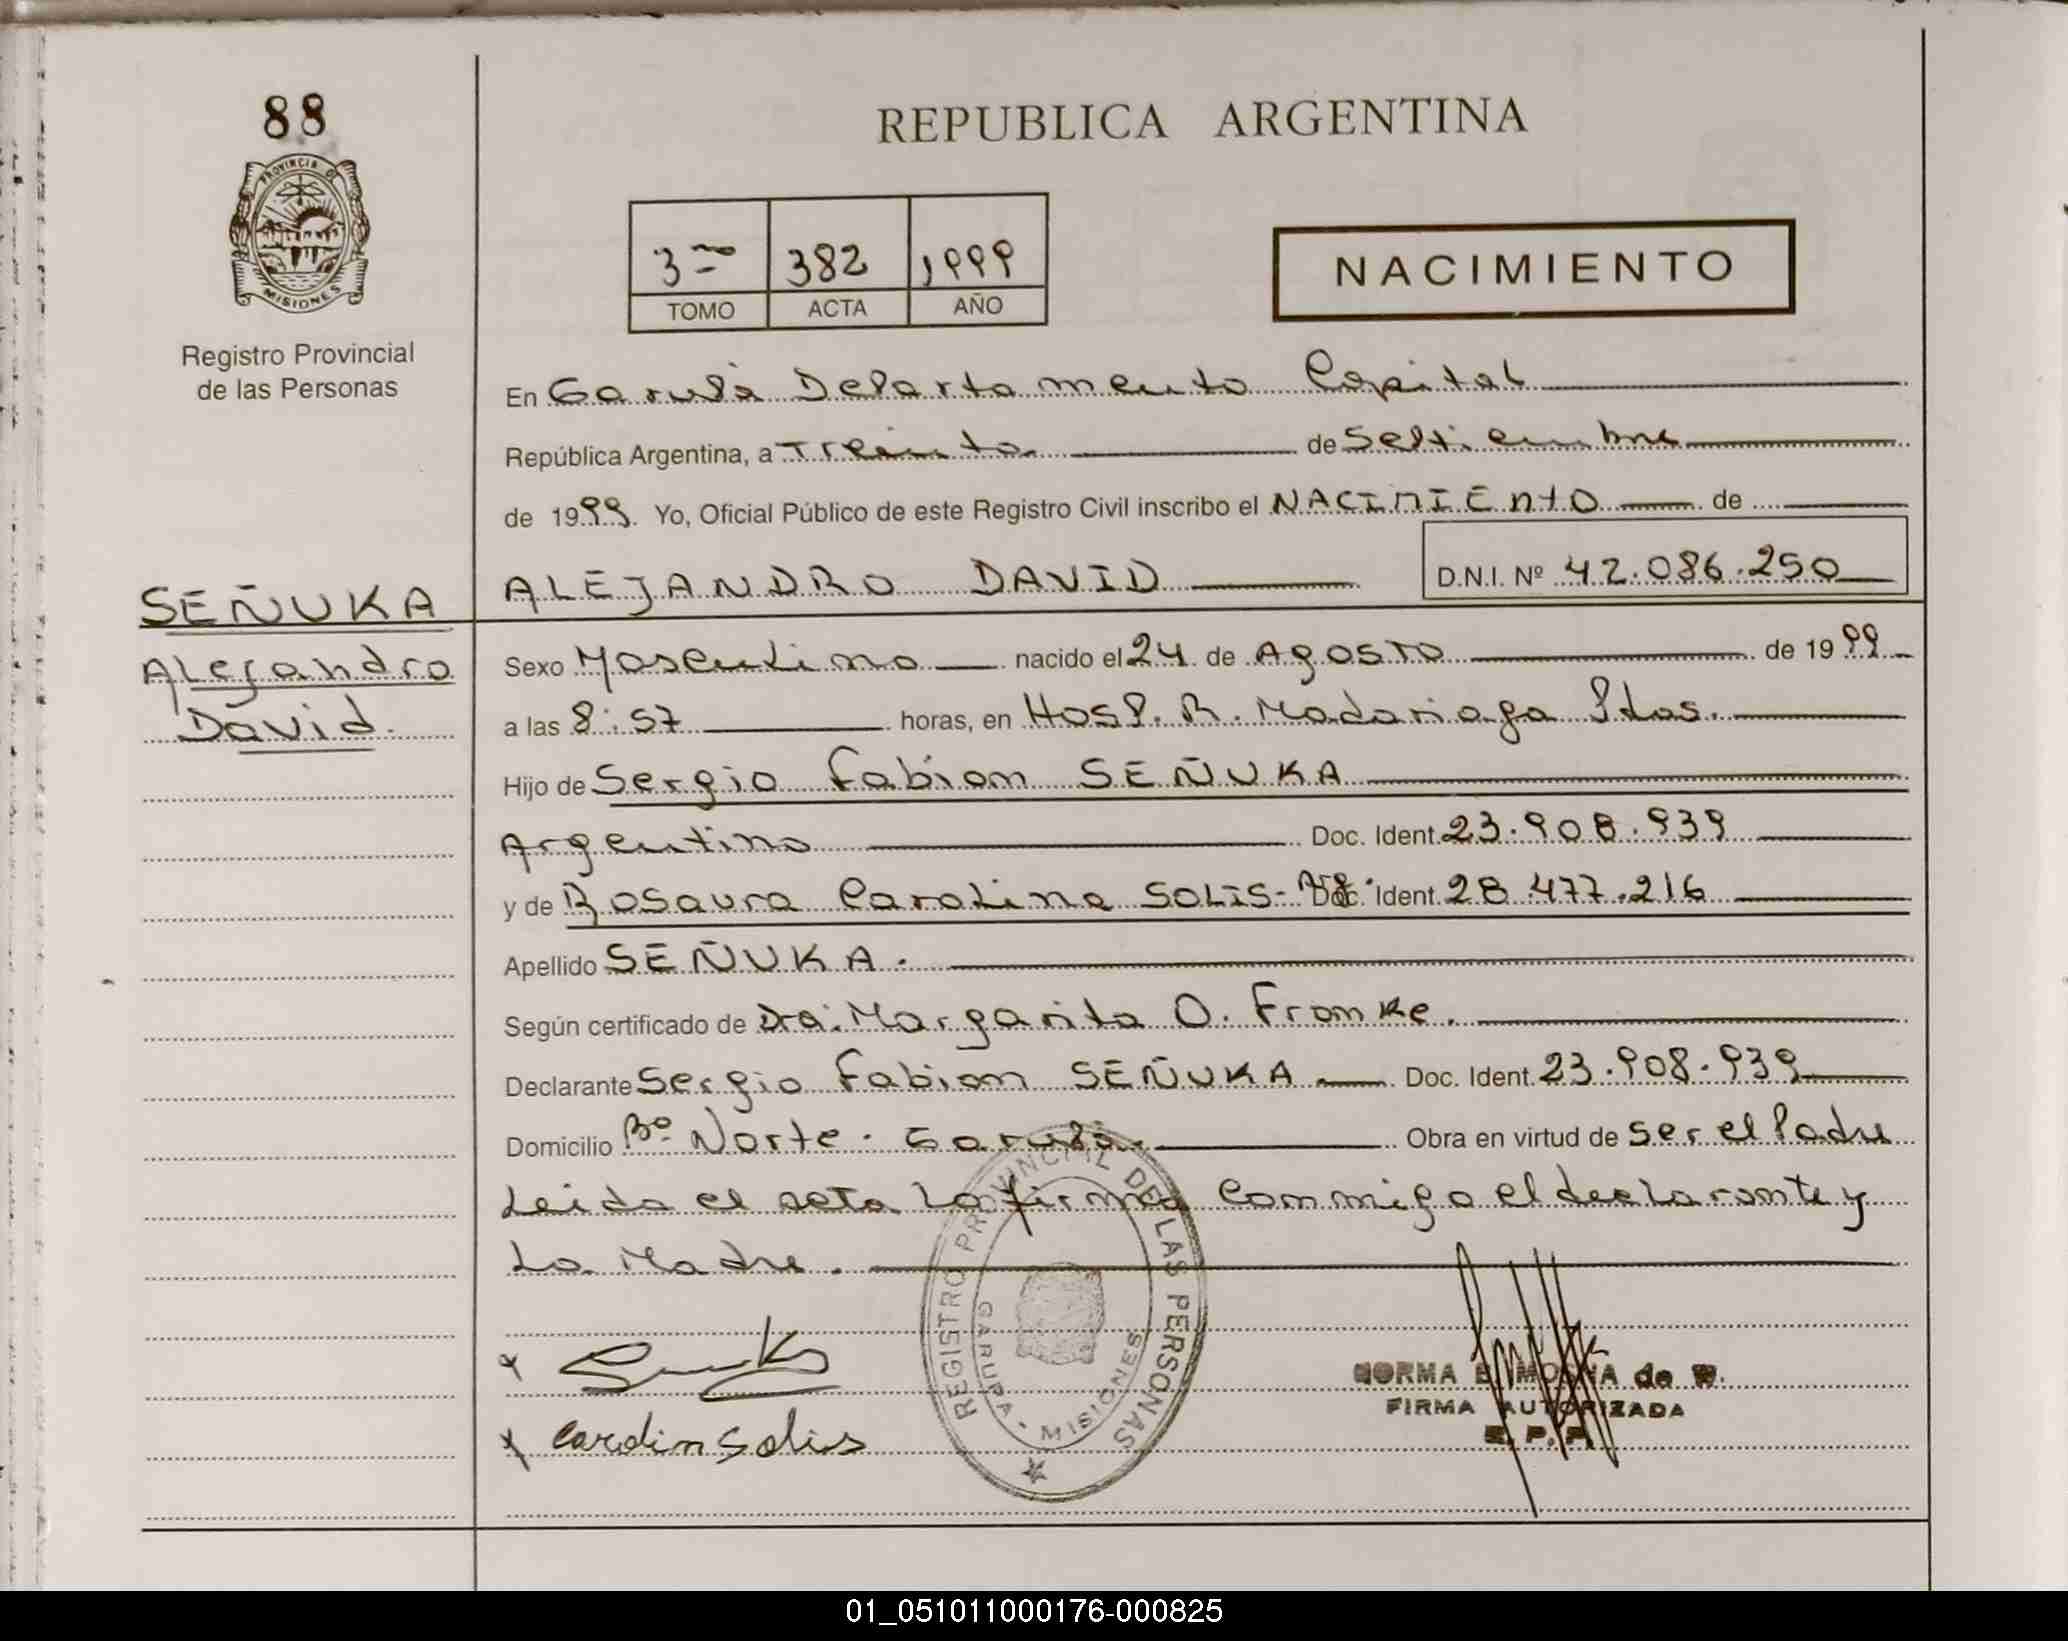 88
PROVINCIA DE
MISIONES
Registro Provincial
de las Personas
REPUBLICA ARGENTINA
3ro 382 1999
TOMO ACTA AÑO
NACIMIENTO
En Garupá Departamento Capital
República Argentina, a Treinta de Septiembre
de 1999. Yo, Oficial Público de este Registro Civil inscribo el NACIMIENTO de
SEÑUKA
Alejandro
David
ALEJANDRO DAVID D.N.I. Nº 42.086.250
Sexo Masculino nacido el 24 de AGOSTO de 1999
a las 8:57 horas, en Hosp. R. Madariaga Pdas.
Hijo de Sergio Fabian SEÑUKA
Argentino Doc. Ident. 23.908.939
y de Rosaura Carolina SOLIS- Arg. Doc. Ident. 28.477.216
Apellido SEÑUKA.
Según certificado de Dra. Margarita O. Franke.
Declarante Sergio Fabian SEÑUKA Doc. Ident. 23.908.939
Domicilio Bº Norte. Garupá. Obra en virtud de ser el Padre
Leida el acta la firma conmigo el declarante y
La Madre.
REGISTRO PROVINCIAL DE LAS PERSONAS
GARUPA - MISIONES
x
x Carolin Solis
NORMA de W.
FIRMA AUTORIZADA
01_051011000176-000825